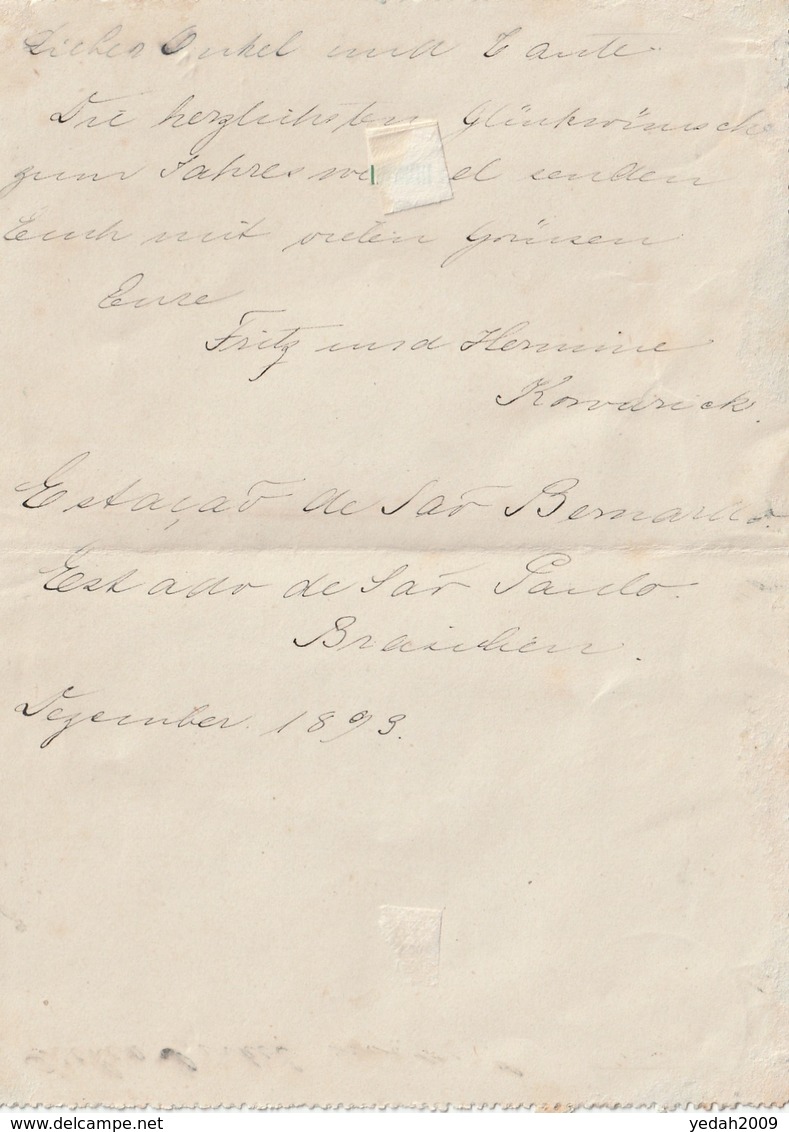 Lieber Onkel und Tante
Die herzlichsten Glückwünsche
zum Jahreswe el senden
Euch mit vielen Grüssen
Eure
Fritz und Hermine
Kowarick.
Estação de São Bernardo.
Estado de São Paulo.
Brasilien.
Dezember. 1893.
yedah2009